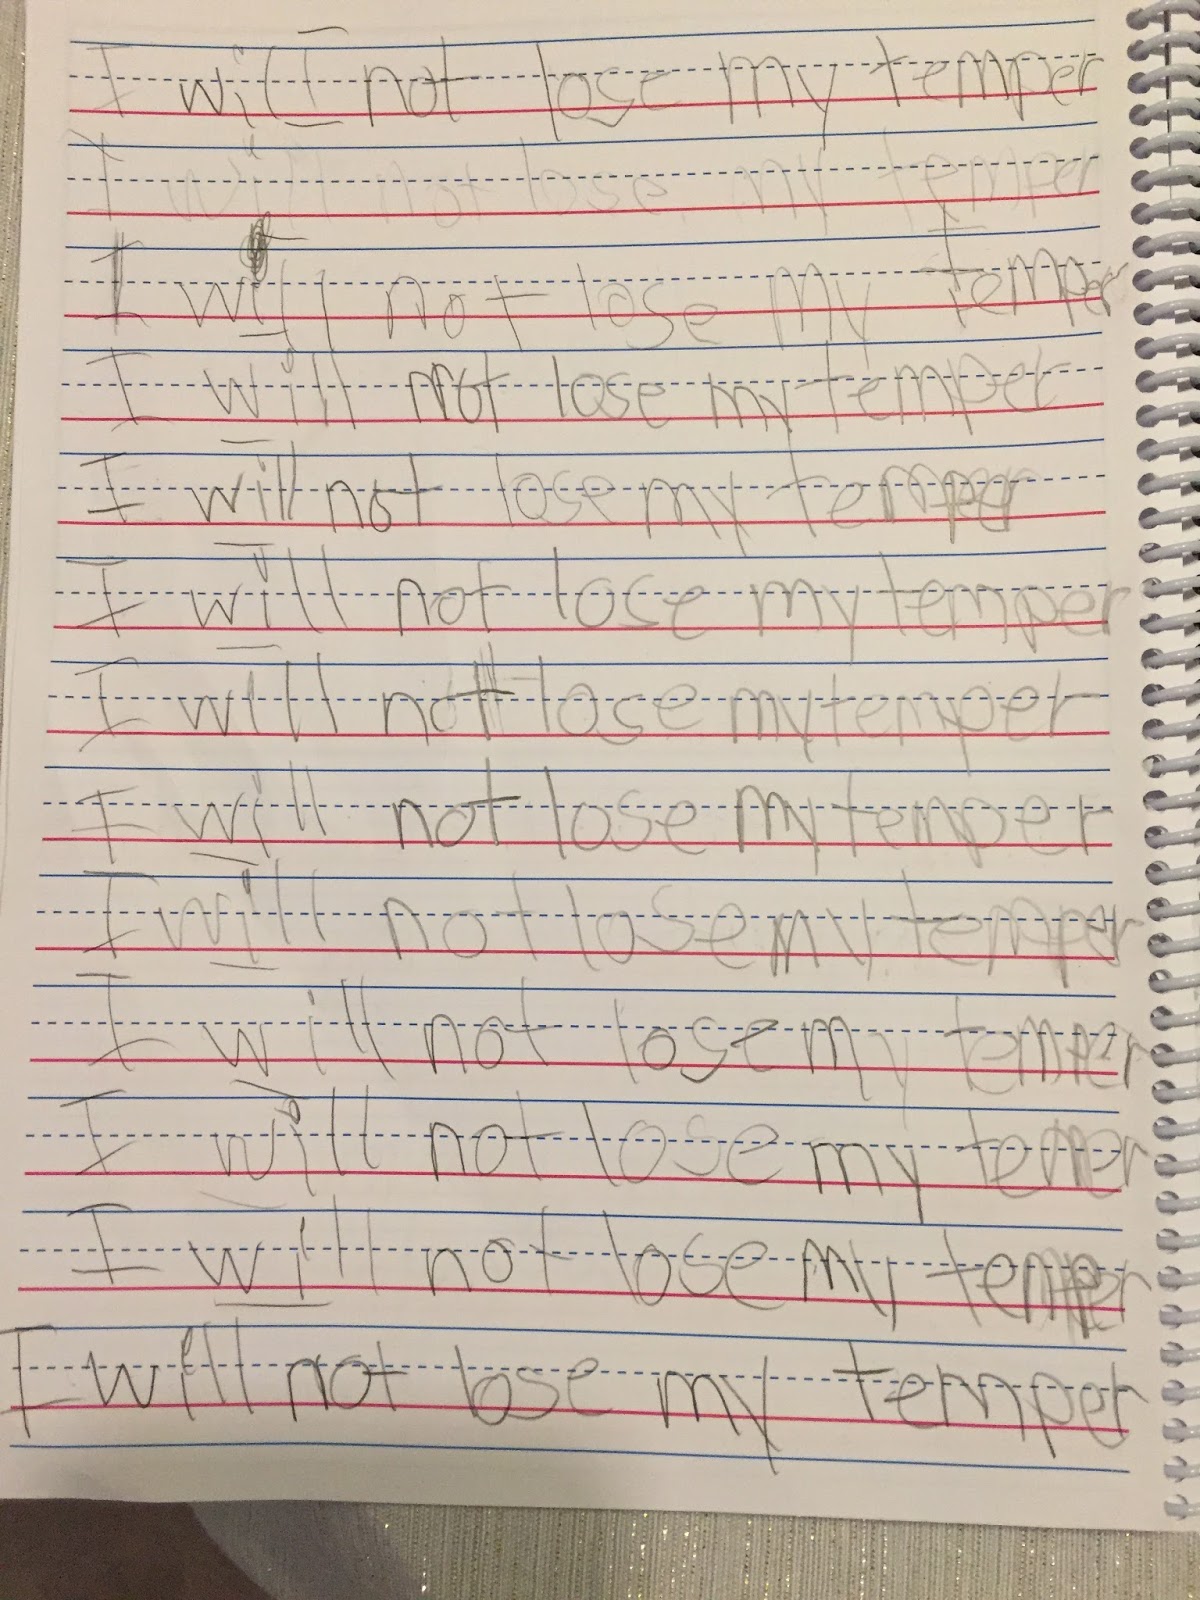 I will not lose my temper
I will not lose my temper
I will not lose my temper
I will not lose my temper
I will not lose my temper
I will not lose my temper
I will not lose my temper
I will not lose my temper
I will not lose my temper
I will not lose my temper
I will not lose my temper
I will not lose my temper
I will not lose my temper